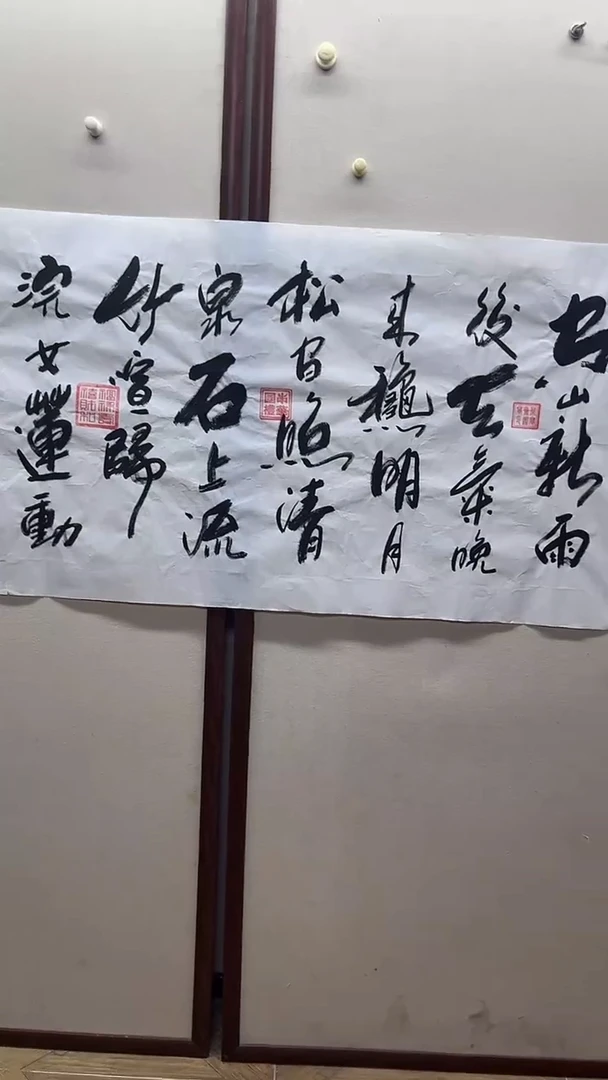 空山新雨
後天氣晚
来龝明月
松間照清
泉石上流
竹喧歸
浣女蓮動